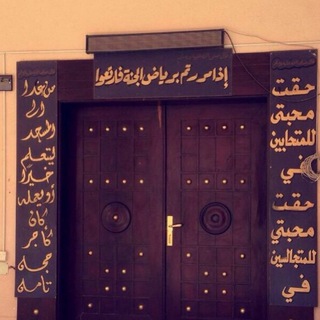 إذا مررتم برياض الجنة فارتعوا
حقت
محبتي
للمتحابين
في
حقت
محبتي
للمتجالسين
في
من غدا
إلى
المسجد
ليتعلم
خيرا
أو يعلمه
كان
كأجر
حجه
تامه